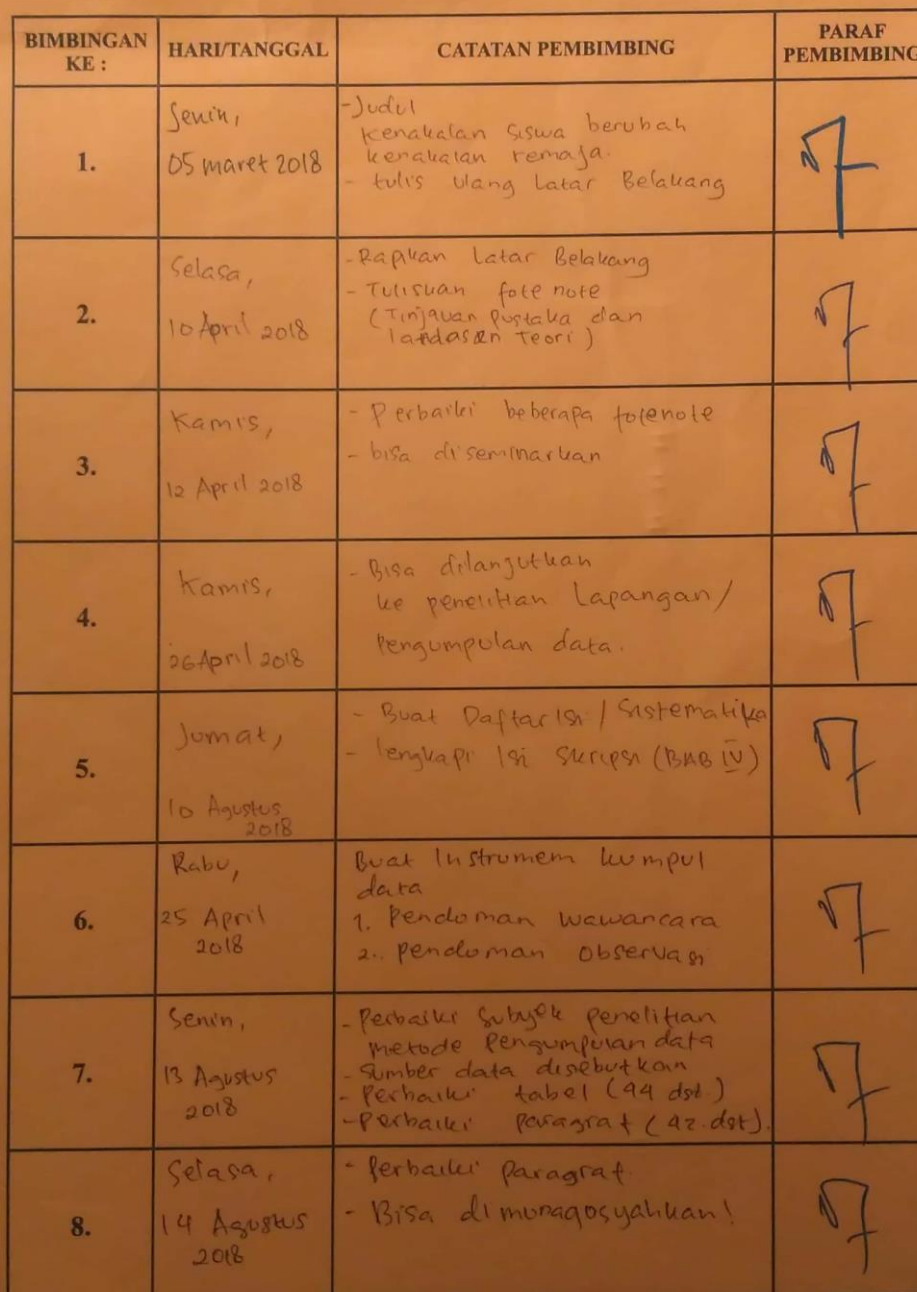 BIMBINGAN KE :
HARI/TANGGAL
CATATAN PEMBIMBING
PARAF PEMBIMBING
1.
Senin,
05 maret 2018
- Judul
kenakalan siswa berubah
kenakalan remaja.
- tulis ulang Latar Belakang
2.
Selasa,
10 April 2018
- Rapikan Latar Belakang
- Tuliskan fote note
(Tinjauan Pustaka dan
landasan Teori)
3.
Kamis,
12 April 2018
- Perbaiki beberapa fotenote
- bisa diseminarkan
4.
Kamis,
26 April 2018
- Bisa dilanjutkan
ke penelitian Lapangan/
Pengumpulan data.
5.
Jumat,
10 Agustus
2018
- Buat Daftar Isi / Sistematika
- lengkapi Isi Skripsi (BAB IV)
6.
Rabu,
25 April
2018
Buat Instrumem kumpul
data
1. Pendoman wawancara
2.. pendoman Observasi
7.
Senin,
13 Agustus
2018
- Perbaiki Subyek penelitian
metode Pengumpulan data
- Sumber data disebutkan
- Perbaiki tabel (44 dst.)
- Perbaiki paragraf (42.dst).
8.
Selasa,
14 Agustus
2018
- Perbaiki paragraf.
- Bisa dimunaqosyahkan!